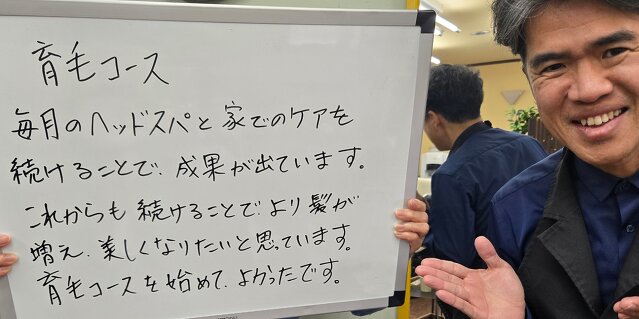 育毛コース
毎月のヘッドスパと家でのケアを
続けることで、成果が出ています。
これからも続けることで、より髪が
増え、美しくなりたいと思っています。
育毛コースを始めて、よかったです。